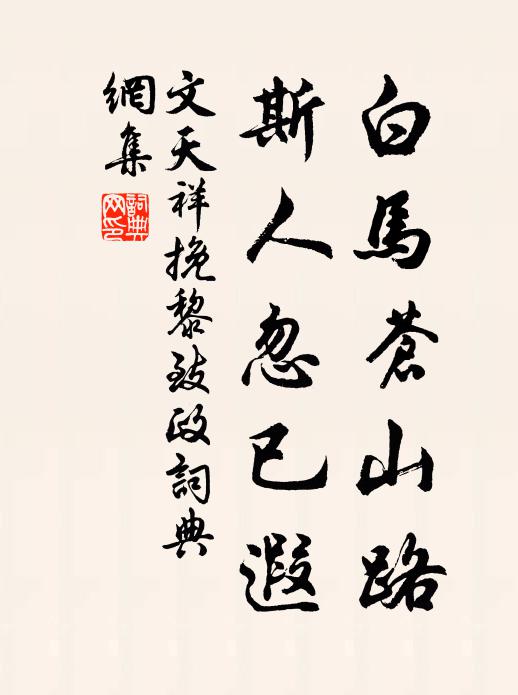 白馬蒼山路
斯人忽已遐
文天祥挽黎致政詞典
網集
詞典网印